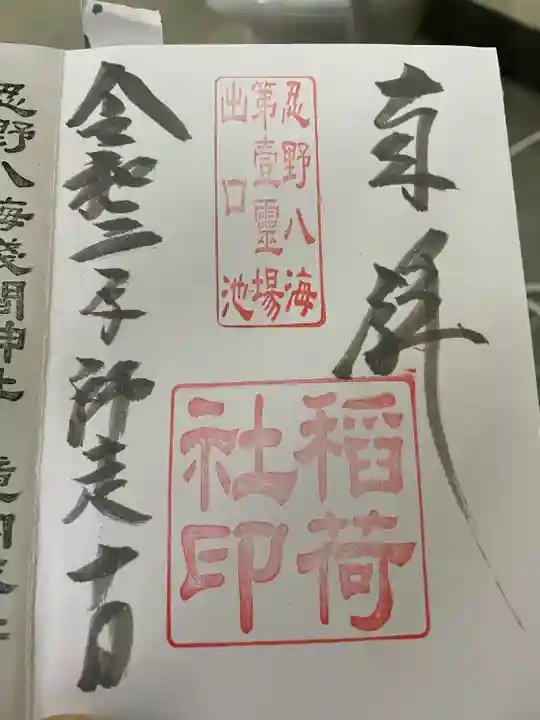 奉拝
忍野八海
第壹靈場
出口池
稲荷
社印
令和二年師走十日
忍野八海浅間神社